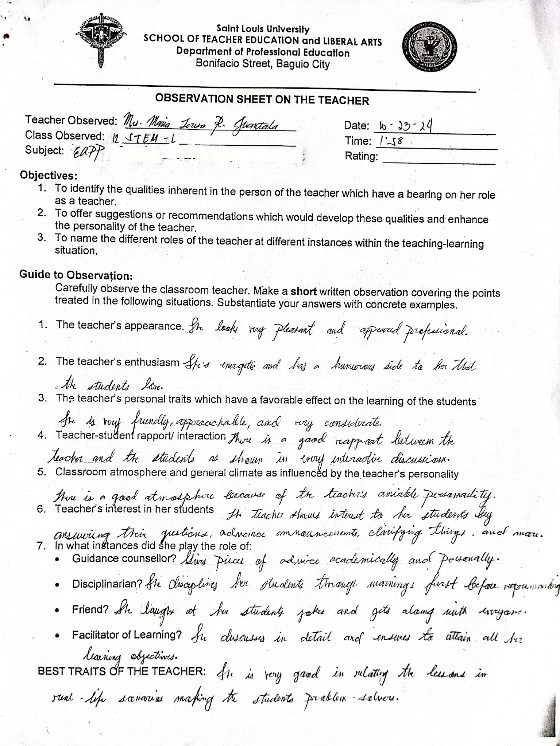 Saint Louis University
SCHOOL OF TEACHER EDUCATION and LIBERAL ARTS
Department of Professional Education
Bonifacio Street, Baguio City
OBSERVATION SHEET ON THE TEACHER
Teacher Observed: Mrs. R.
Date: 10-23-24
Class Observed: 12 STEM-L
Time: 1:58
Subject: EAPP
Rating:
Objectives:
1. To identify the qualities inherent in the person of the teacher which have a bearing on her role
as a teacher.
2. To offer suggestions or recommendations which would develop these qualities and enhance
the personality of the teacher.
3. To name the different roles of the teacher at different instances within the teaching-learning
situation.
Guide to Observation:
Carefully observe the classroom teacher. Make a short written observation covering the points
treated in the following situations. Substantiate your answers with concrete examples.
1. The teacher's appearance. She looks very pleasant and appeared professional.
2. The teacher's enthusiasm She's energetic and has a humorous side to her that
the students love.
3. The teacher's personal traits which have a favorable effect on the learning of the students
She is very friendly, approachable, and very considerate.
4. Teacher-student rapport/ interaction There is a good rapport between the
teacher and the students as shown in very interactive discussions.
5. Classroom atmosphere and general climate as influenced by the teacher's personality
There is a good atmosphere because of the teacher's amiable personality.
6. Teacher's interest in her students The teacher shows interest to her students by
answering their questions, advance announcements, clarifying things, and more.
7. In what instances did she play the role of:
• Guidance counsellor? Gives pieces of advice academically and personally.
• Disciplinarian? She disciplines her students through warnings first before
• Friend? She laughs at her students jokes and gets along with everyone.
• Facilitator of Learning? She discusses in detail and ensures to attain all her
learning objectives.
BEST TRAITS OF THE TEACHER: She is very good in relating the lessons in
real-life scenarios making the students problem-solvers.